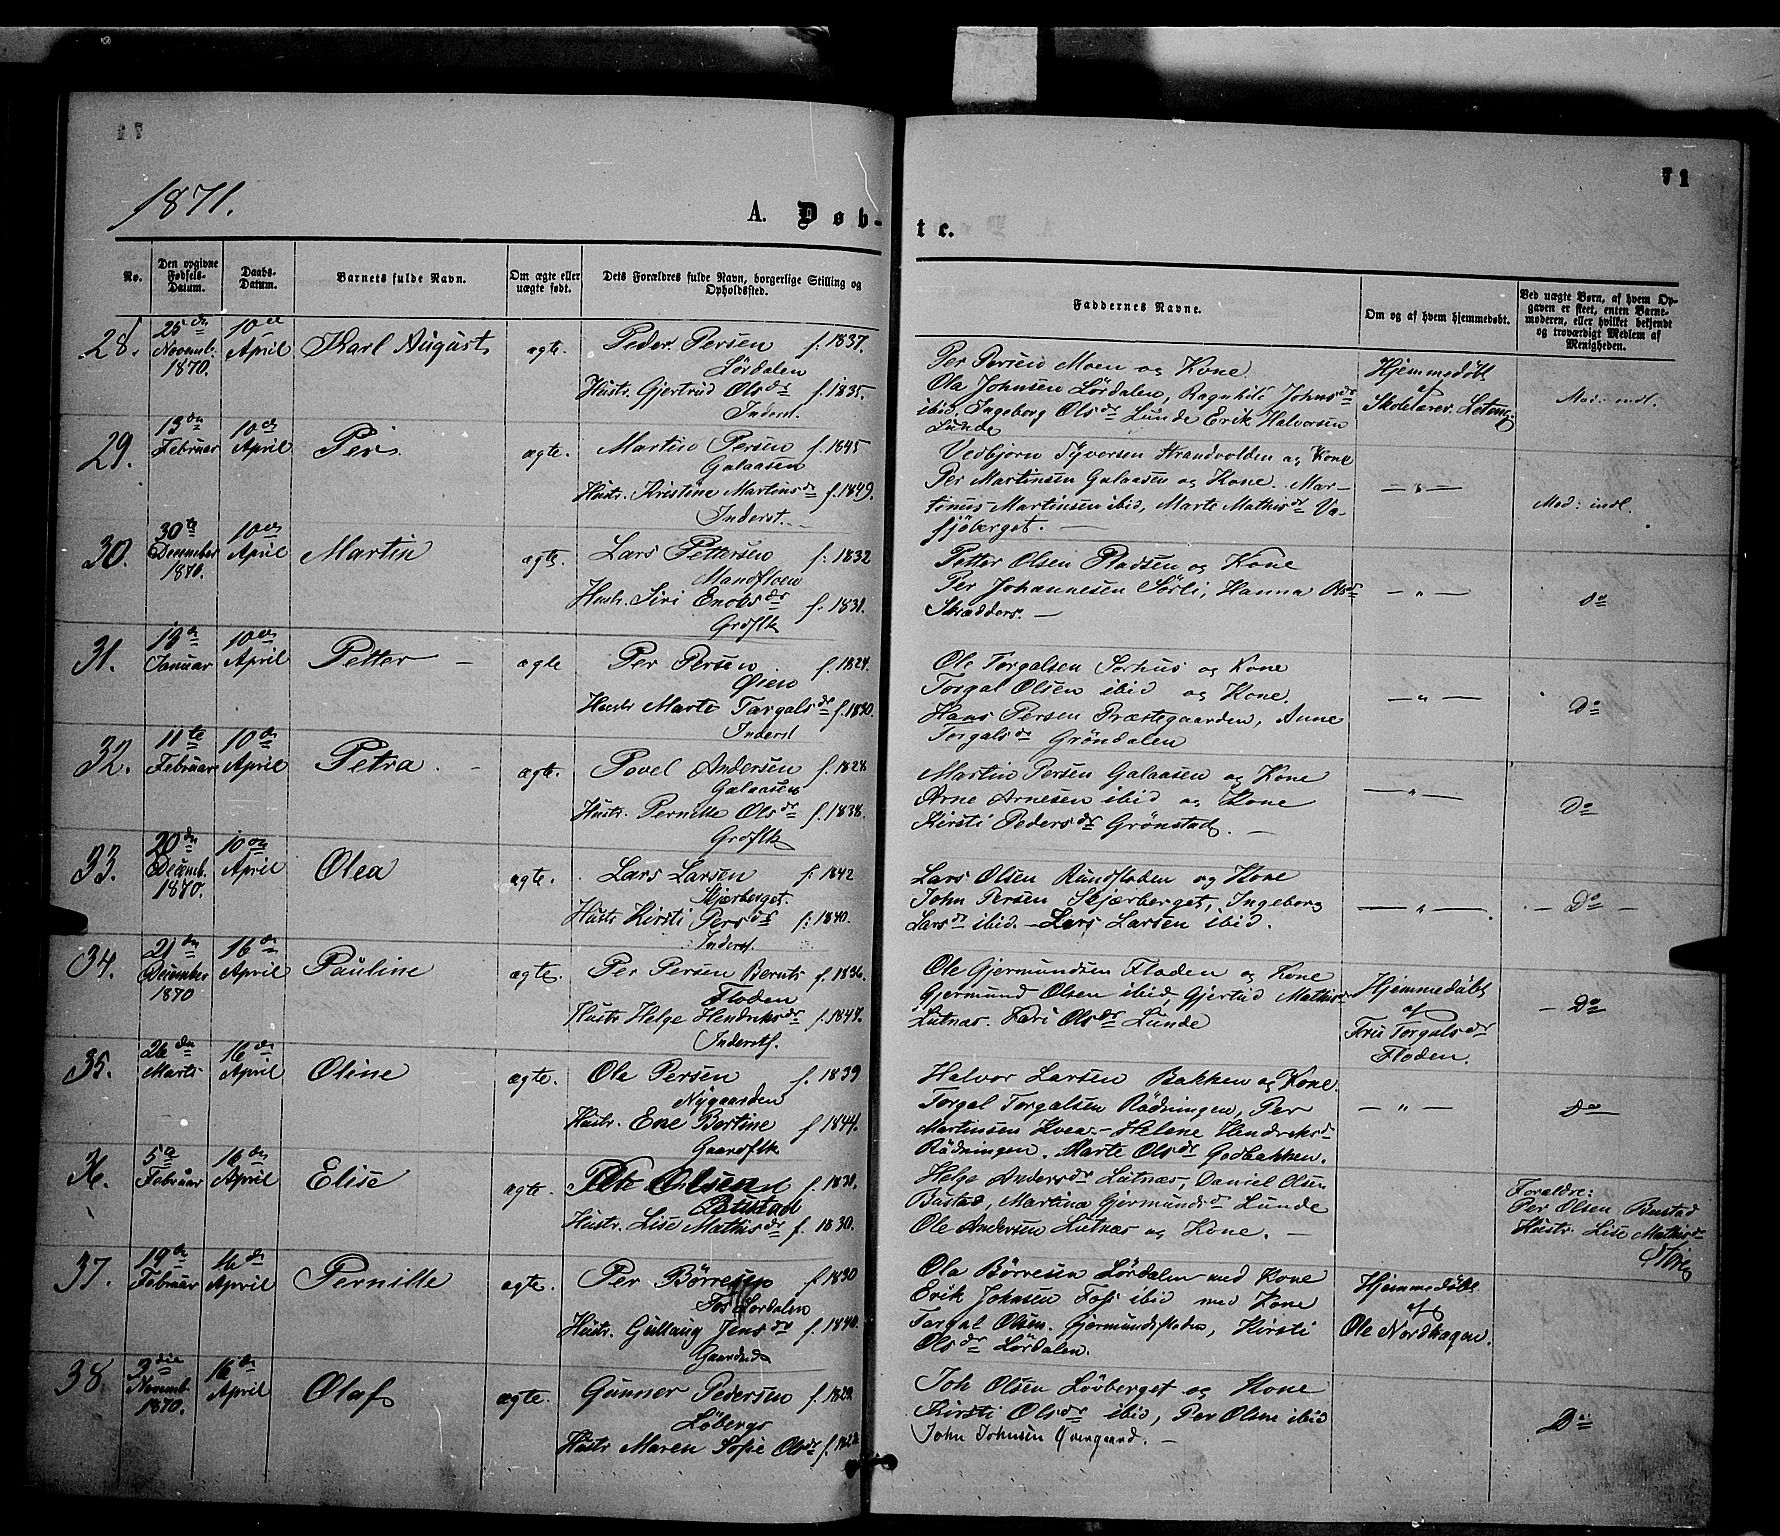 71
1871.
A. Døb-
te.
No.
Den opgivne Fødsels-Datum.
Daabs-Datum.
Barnets fulde Navn.
Om ægte eller uægte født.
Dets Forældres fulde Navn, borgerlige Stilling og Opholdssted.
Faddernes Navne.
Om og af hvem hjemmedøbt.
Ved uægte Børn, af hvem Opgaven er skeet, enten Barnemoderen, eller hvilket bekjendt og troværdigt Medlem af Menigheden.
28. 25de Novemb. 1870. 10de April Karl August ægte.
Peder Persen f. 1837.
Lördalen
Hustr. Gjertrud Olsdr f. 1835.
Inderst.
Per Persen Moen og Kone.
Ola Johnsen Lördalen, Ragnhild Johnsdr
ibid. Ingeborg Olsdr Lunde Erik Halvorsen
Lunde
Hjemmedöbt
af
Skolelærer
Mod: indl.
29. 13de Februar 10de April Per ægte.
Martin Persen f. 1845
Galaasen
Hustr. Kristine Martinsdr f. 1849.
Inderst.
Vedbjörn Syversen Strandvolden og Kone
Per Martinsen Galaasen og Kone. Mar-
tinus Martinsen ibid, Marte Mathisdr Va-
sjöberget. —
— " —
Mod: indl.
30. 30te December 1870. 10de April Martin ægte.
Lars Pettersen f. 1832
Mandfloen
Hustr. Siri Enoksdr f. 1831.
Grdflk
Petter Olsen Pladsen og Kone
Per Johannesen Sörli, Hanna Olsdr
Skradders. —
— " —
Do
31. 19de Januar 10de April Petter — ægte
Per Persen f. 1824.
Øien
Hustr Marte Torgalsdr f. 1830.
Inderst
Ole Torgalsen Sorhus og Kone
Torgal Olsen ibid og Kone.
Hans Persen Præstegaarden, Anne
Torgalsdr Gröndalen
— " —
Do
32. 11te Februar 10de April Petra — ægte.
Povel Andersen f. 1824.
Galaasen
Hustr. Pernille Olsdr f. 1838.
Grdflk
Martin Persen Galaasen og Kone
Arne Arnesen ibid og Kone
Kirsti Pedersdr Grönstad. —
— " —
Do
33. 20de Decemb. 1870. 10de April Olea ægte.
Lars Larsen f. 1842
Skjærberget.
Hustr Kirsti Persdr f. 1840.
Inderst.
Lars Olsen Rundfloden og Kone
John Persen Skjærberget, Ingeborg
Larsdr ibid. — Lars Larsen ibid.
— " —
— Do —
34. 21de December 1870 16de April Pauline ægte.
Per Persen Bernts f. 1836.
Floden
Hustr Helge Hendriksdr f. 1847.
Inderst.
Ole Gjermundsen Floden og Kone
Gjermund Olsen ibid, Gjertud Mathisdr
Lutnæs. Kari Olsdr Lunde
Hjemmedøbt
af
Torgalsdr
Floden.
— Do
35. 26de Marts 16de April Oline ægte.
Ole Persen f. 1839
Nygaarden
Hustr. Ene Bertine f 1844.
Gaardflk
Halvor Larsen Bakken og Kone.
Torgal Torgalsen Rödningen, Per
Martinsen Kveæ. — Helene Hendriksdr
Rödningen. Marte Olsdr Godbakken.
— " —
Do
36. 5te Februar 16de April Elise ægte.
Per Olsen f. 1821.
Bustad
Hustr. Lise Mathisdr f. 1830.
Helge Andersdr Lutnæs, Daniel Olsen
Bustad, Martina Gjermundsdr Lunde
Ole Andersen Lutnæs og Kone. —
Forældre:
Per Olsen Bustad
Hustr. Lise Mathisdr
37. 19de Februar 16de April Pernille ægte.
Per Börresen f. 1830
Fos Lordalen
Hustr. Gullaug Jensdr f. 1840.
Ola Börresen Lördalen med Kone
Erik Johnsen Foss ibid med Kone
Torgal Olsen. Gjermundsfloden, Kirsti
Olsdr Lördalen.
Hjemmedöbt
af
Ole Nordhagen.
38. 3die Novemb. 1870. 16de April Olaf ægte.
Gunner Pedersen
Löberge
Hustr Maren Sofie Olsdr
Joh Olsen Lövberget og Kone
Kirsti Olsdr ibid, Per Olsen ibid
John Johnsen Overgaard. —
Do